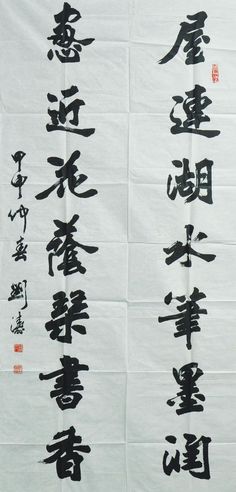 屋連湖水筆墨潤
窻近花蔭琴書香
甲申仲春劉濤